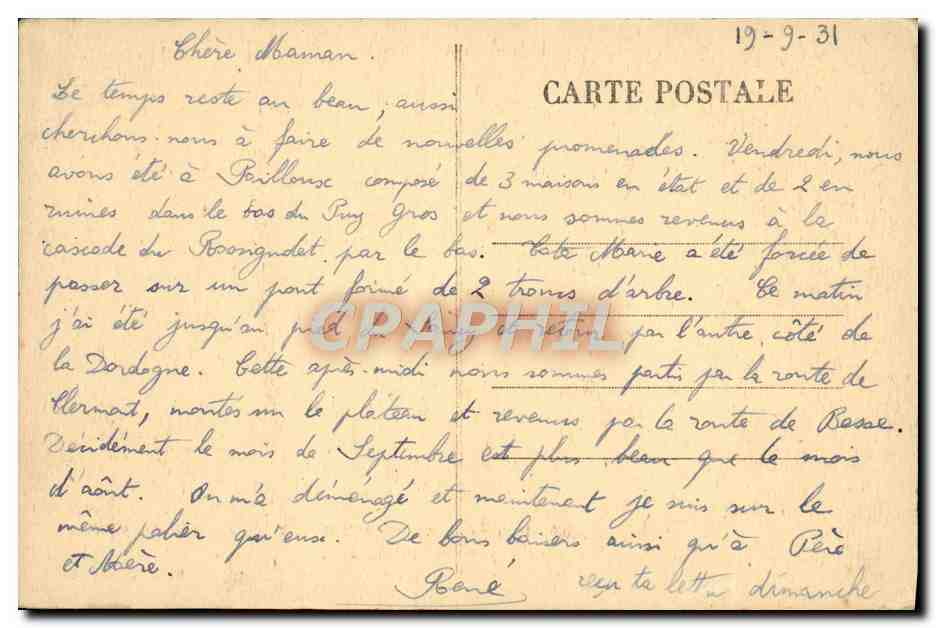 19-9-31
Chère Maman.
CARTE POSTALE
Le temps reste au beau, aussi
cherchons-nous à faire de nouvelles promenades. Vendredi, nous
avons été à Pailloux composé de 3 maisons en état et de 2 en
ruines dans le bas du Puy Gros et nous sommes revenus à la
cascade du Rossignolet par le bas. Tate Marie a été forcée de
passer sur un pont formé de 2 troncs d'arbre. Ce matin
j'ai été jusqu'au pied du Sancy et retour par l'autre côté de
la Dordogne. Cette après-midi nous sommes partis par la route de
Clermont, montés sur le plateau et revenus par la route de Besse.
Décidément le mois de Septembre est plus beau que le mois
d'août. On m'a déménagé et maintenant je suis sur le
même palier qu'eux. De bons baisers ainsi qu'à Père
et Mère.
René
reçu ta lettre dimanche
CPAPHIL